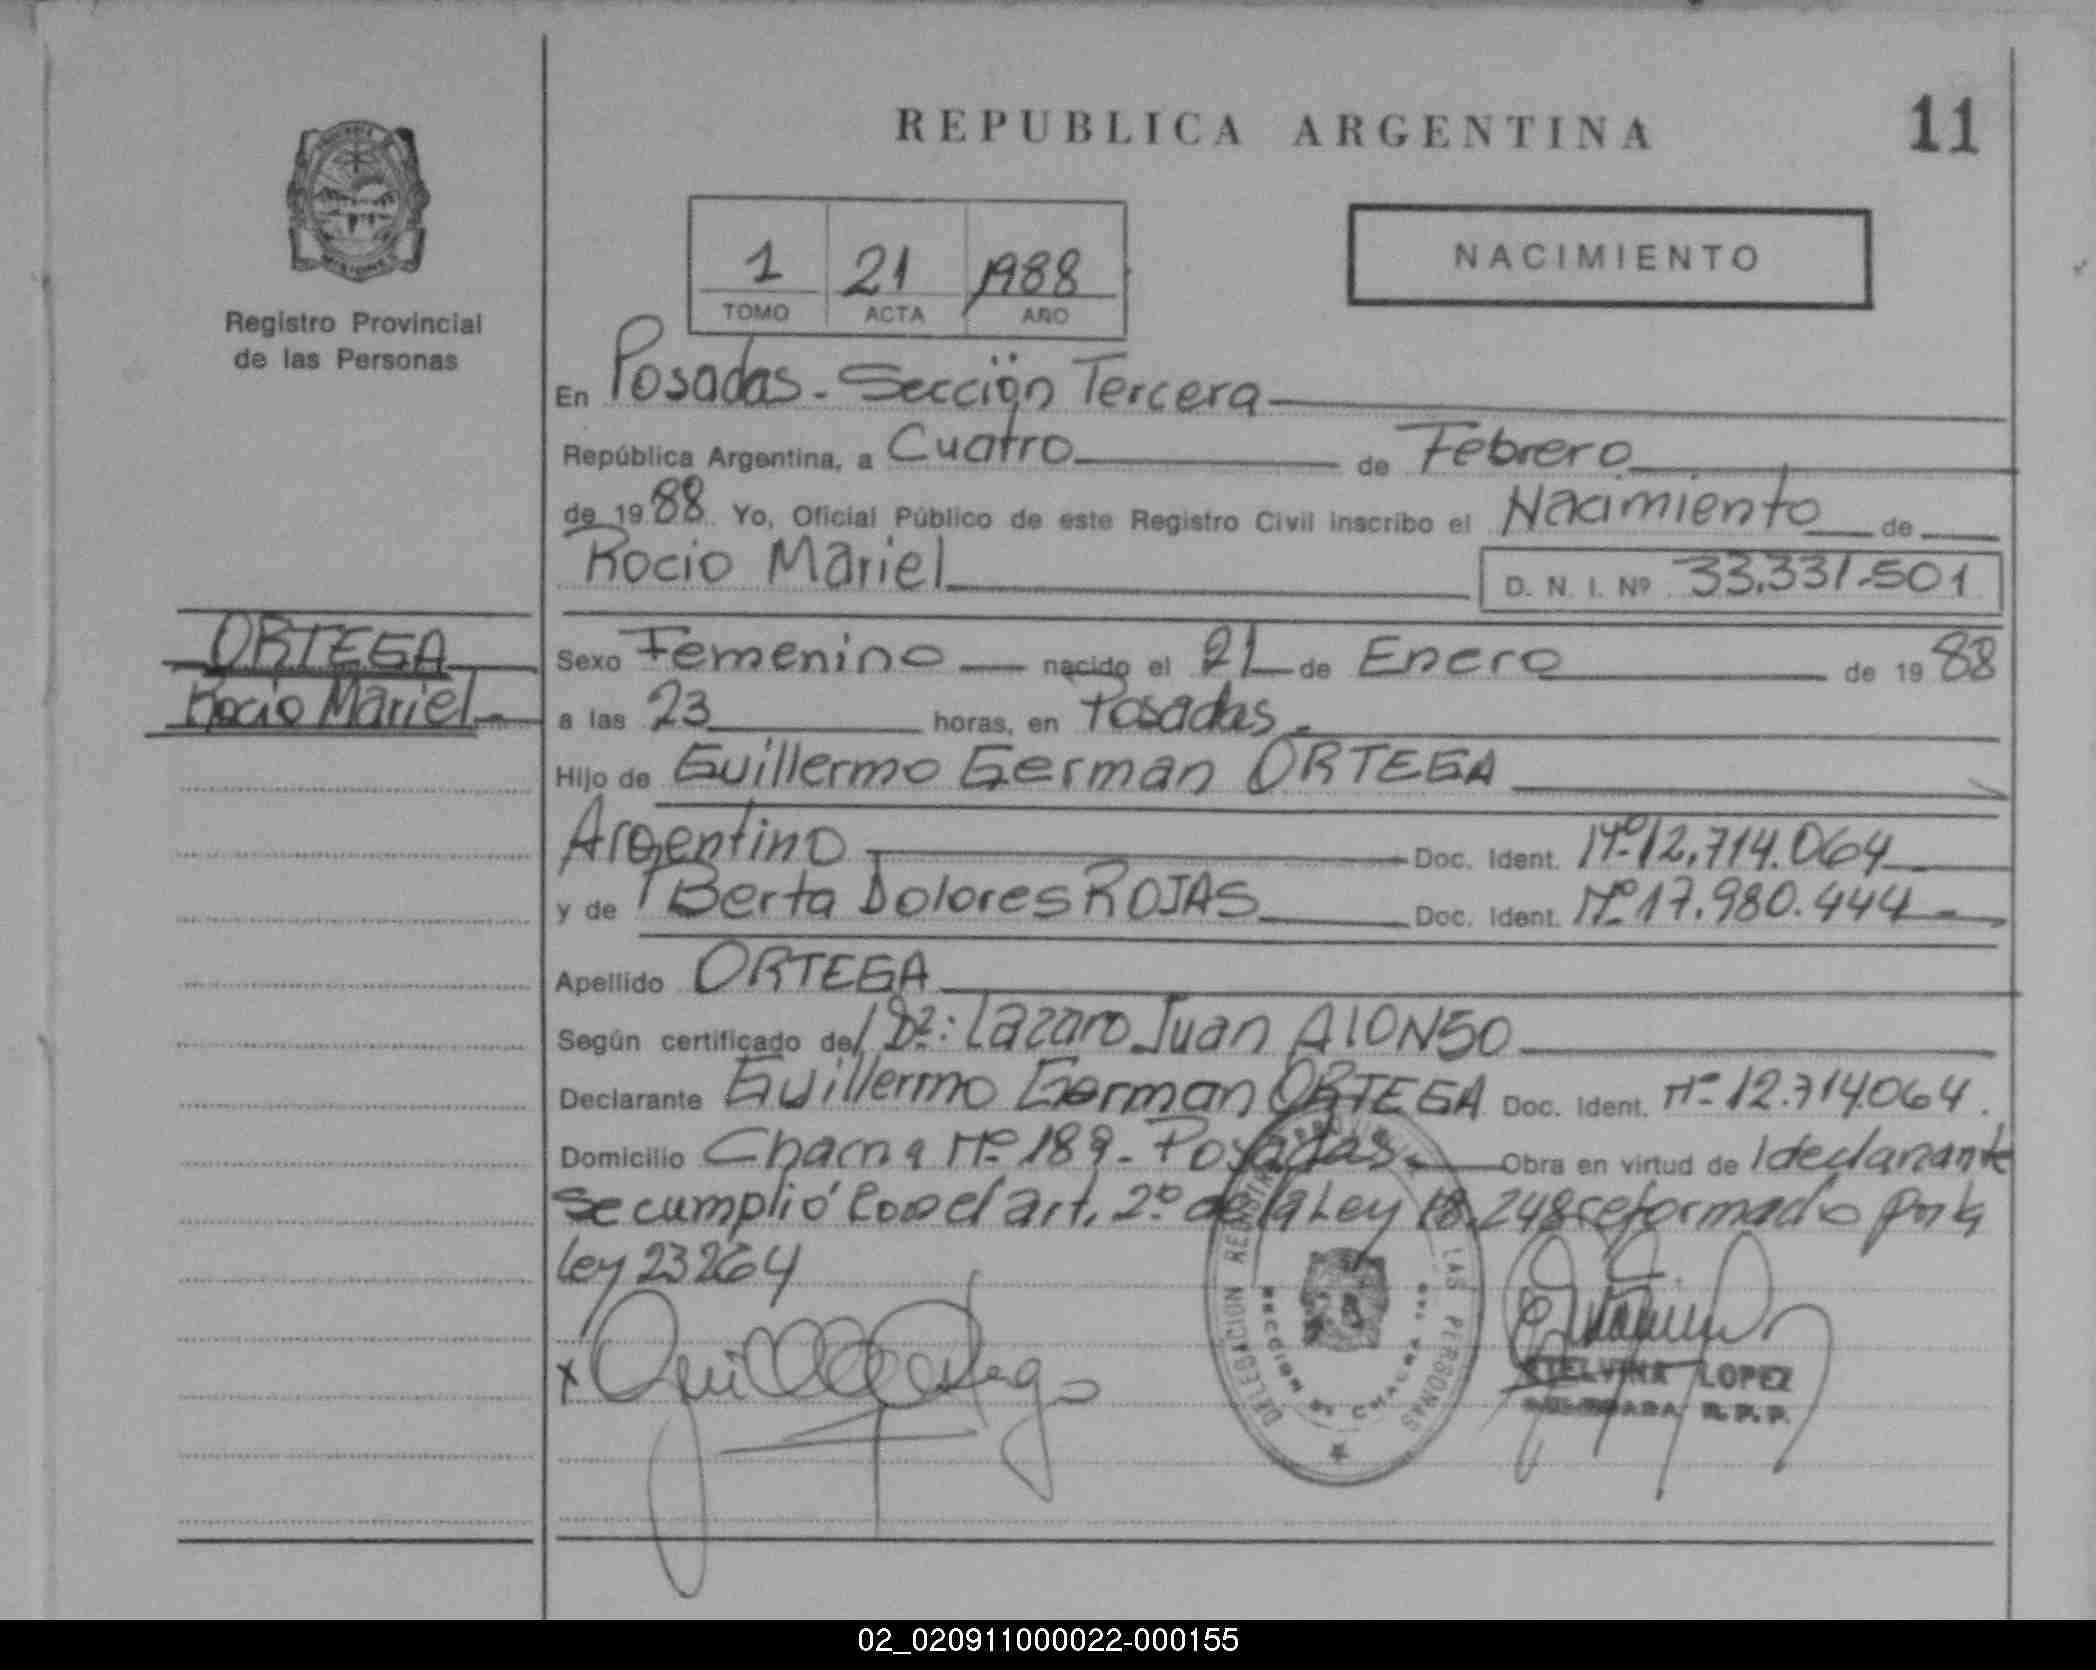 REPUBLICA ARGENTINA
11
MISIONES
Registro Provincial
de las Personas
1 21 1988
TOMO ACTA AÑO
NACIMIENTO
En Posadas - Sección Tercera
República Argentina, a Cuatro de Febrero
de 1988 Yo, Oficial Público de este Registro Civil inscribo el Nacimiento de
Rocio Mariel D. N. I. Nº 33.331.501
ORTEGA
Rocio Mariel
Sexo Femenino nacido el 21 de Enero de 1988
a las 23 horas, en Posadas.
Hijo de Guillermo German ORTEGA
Argentino Doc. Ident. Nº 12.714.064
y de Berta Dolores ROJAS Doc. Ident. Nº 17.980.444
Apellido ORTEGA
Según certificado del Lazaro Juan ALONSO
Declarante Guillermo German ORTEGA Doc. Ident. Nº 12.714.064.
Domicilio Chacra Nº 189 - Posadas. Obra en virtud de declarante
Se cumplió con el art. 2º de la Ley 18.248 reformado por la
Ley 23264
DELEGACION REGISTRO PROVINCIAL DE LAS PERSONAS
CHACRA
ETELVINA LOPEZ
R. P. P.
02_020911000022-000155